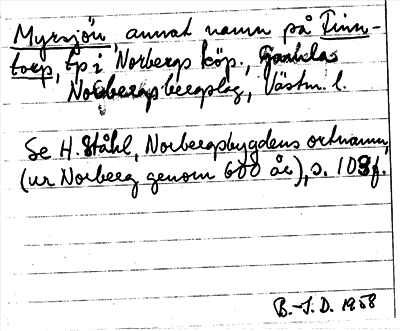 Myrsjön, annat namn på Finn-
torp, tp i Norbergs köp., Gamla
Norbergs bergslag, Västm. l.
Se H. Ståhl, Norbergsbygdens ortnamn
(ur Norberg genom 600 år), s. 108 f.
B.-I. D. 1958